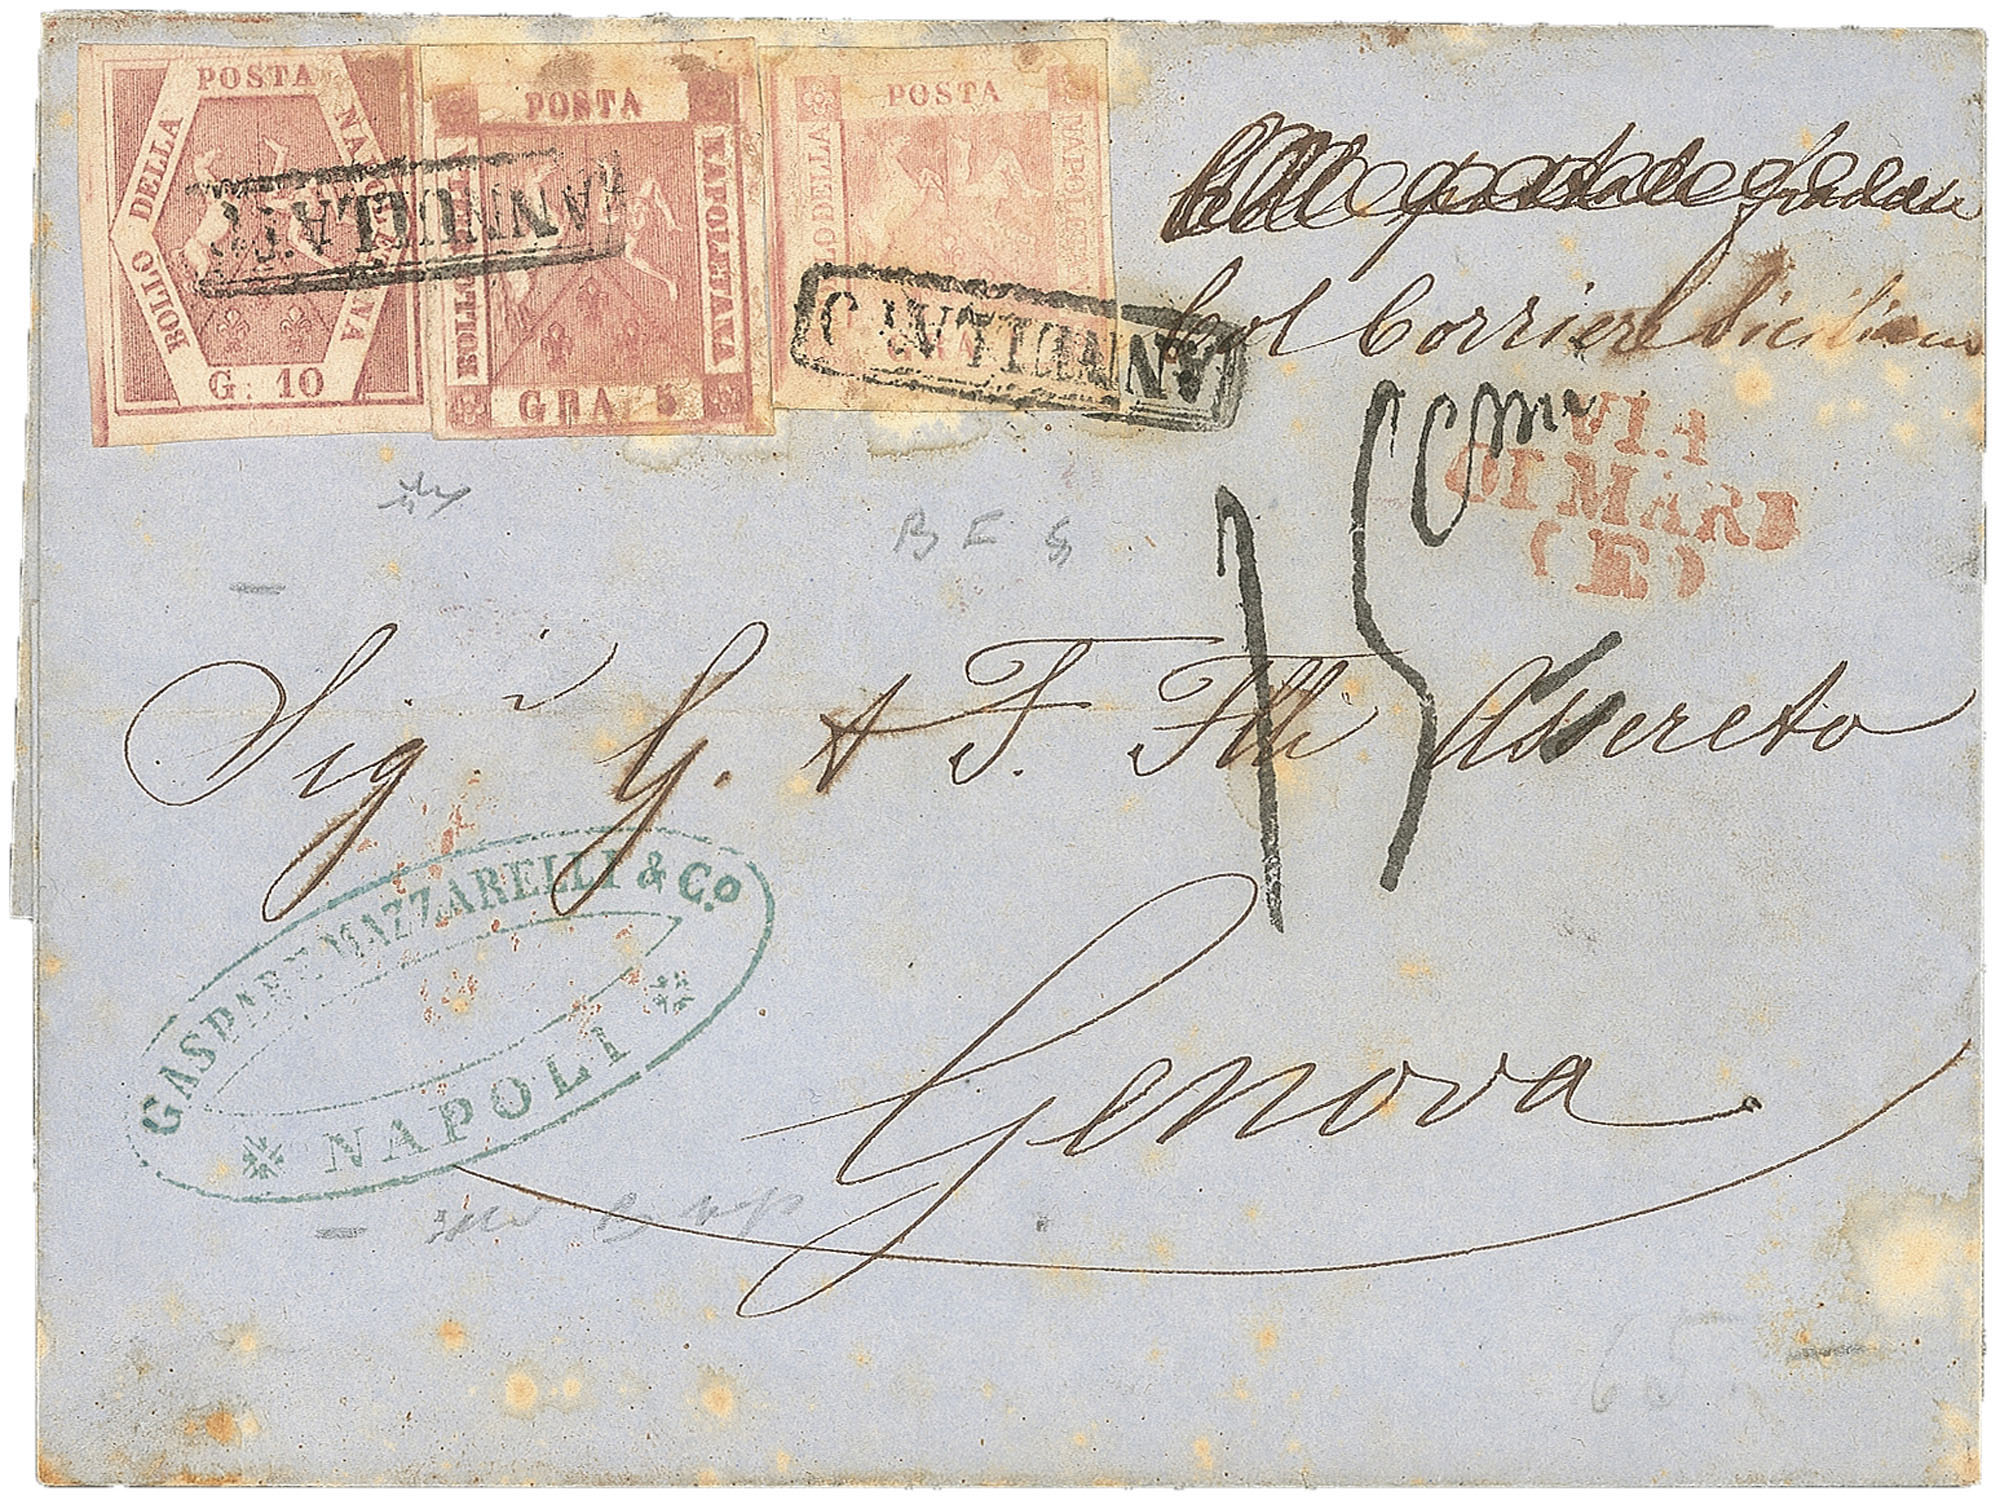 BOLLO DELLA POSTA NAPOLETANA
G: 10
BOLLO DELLA POSTA NAPOLETANA
GRA 5
BOLLO DELLA POSTA NAPOLETANA
GRA
ANNULLATO
ANNULLATO
Col Corriere Siciliano
VIA
DI MARE
(E)
15
Sig.ri G. & F. Flli Assereto
Genova
GASPARE MAZZARELLI & Co
NAPOLI
65